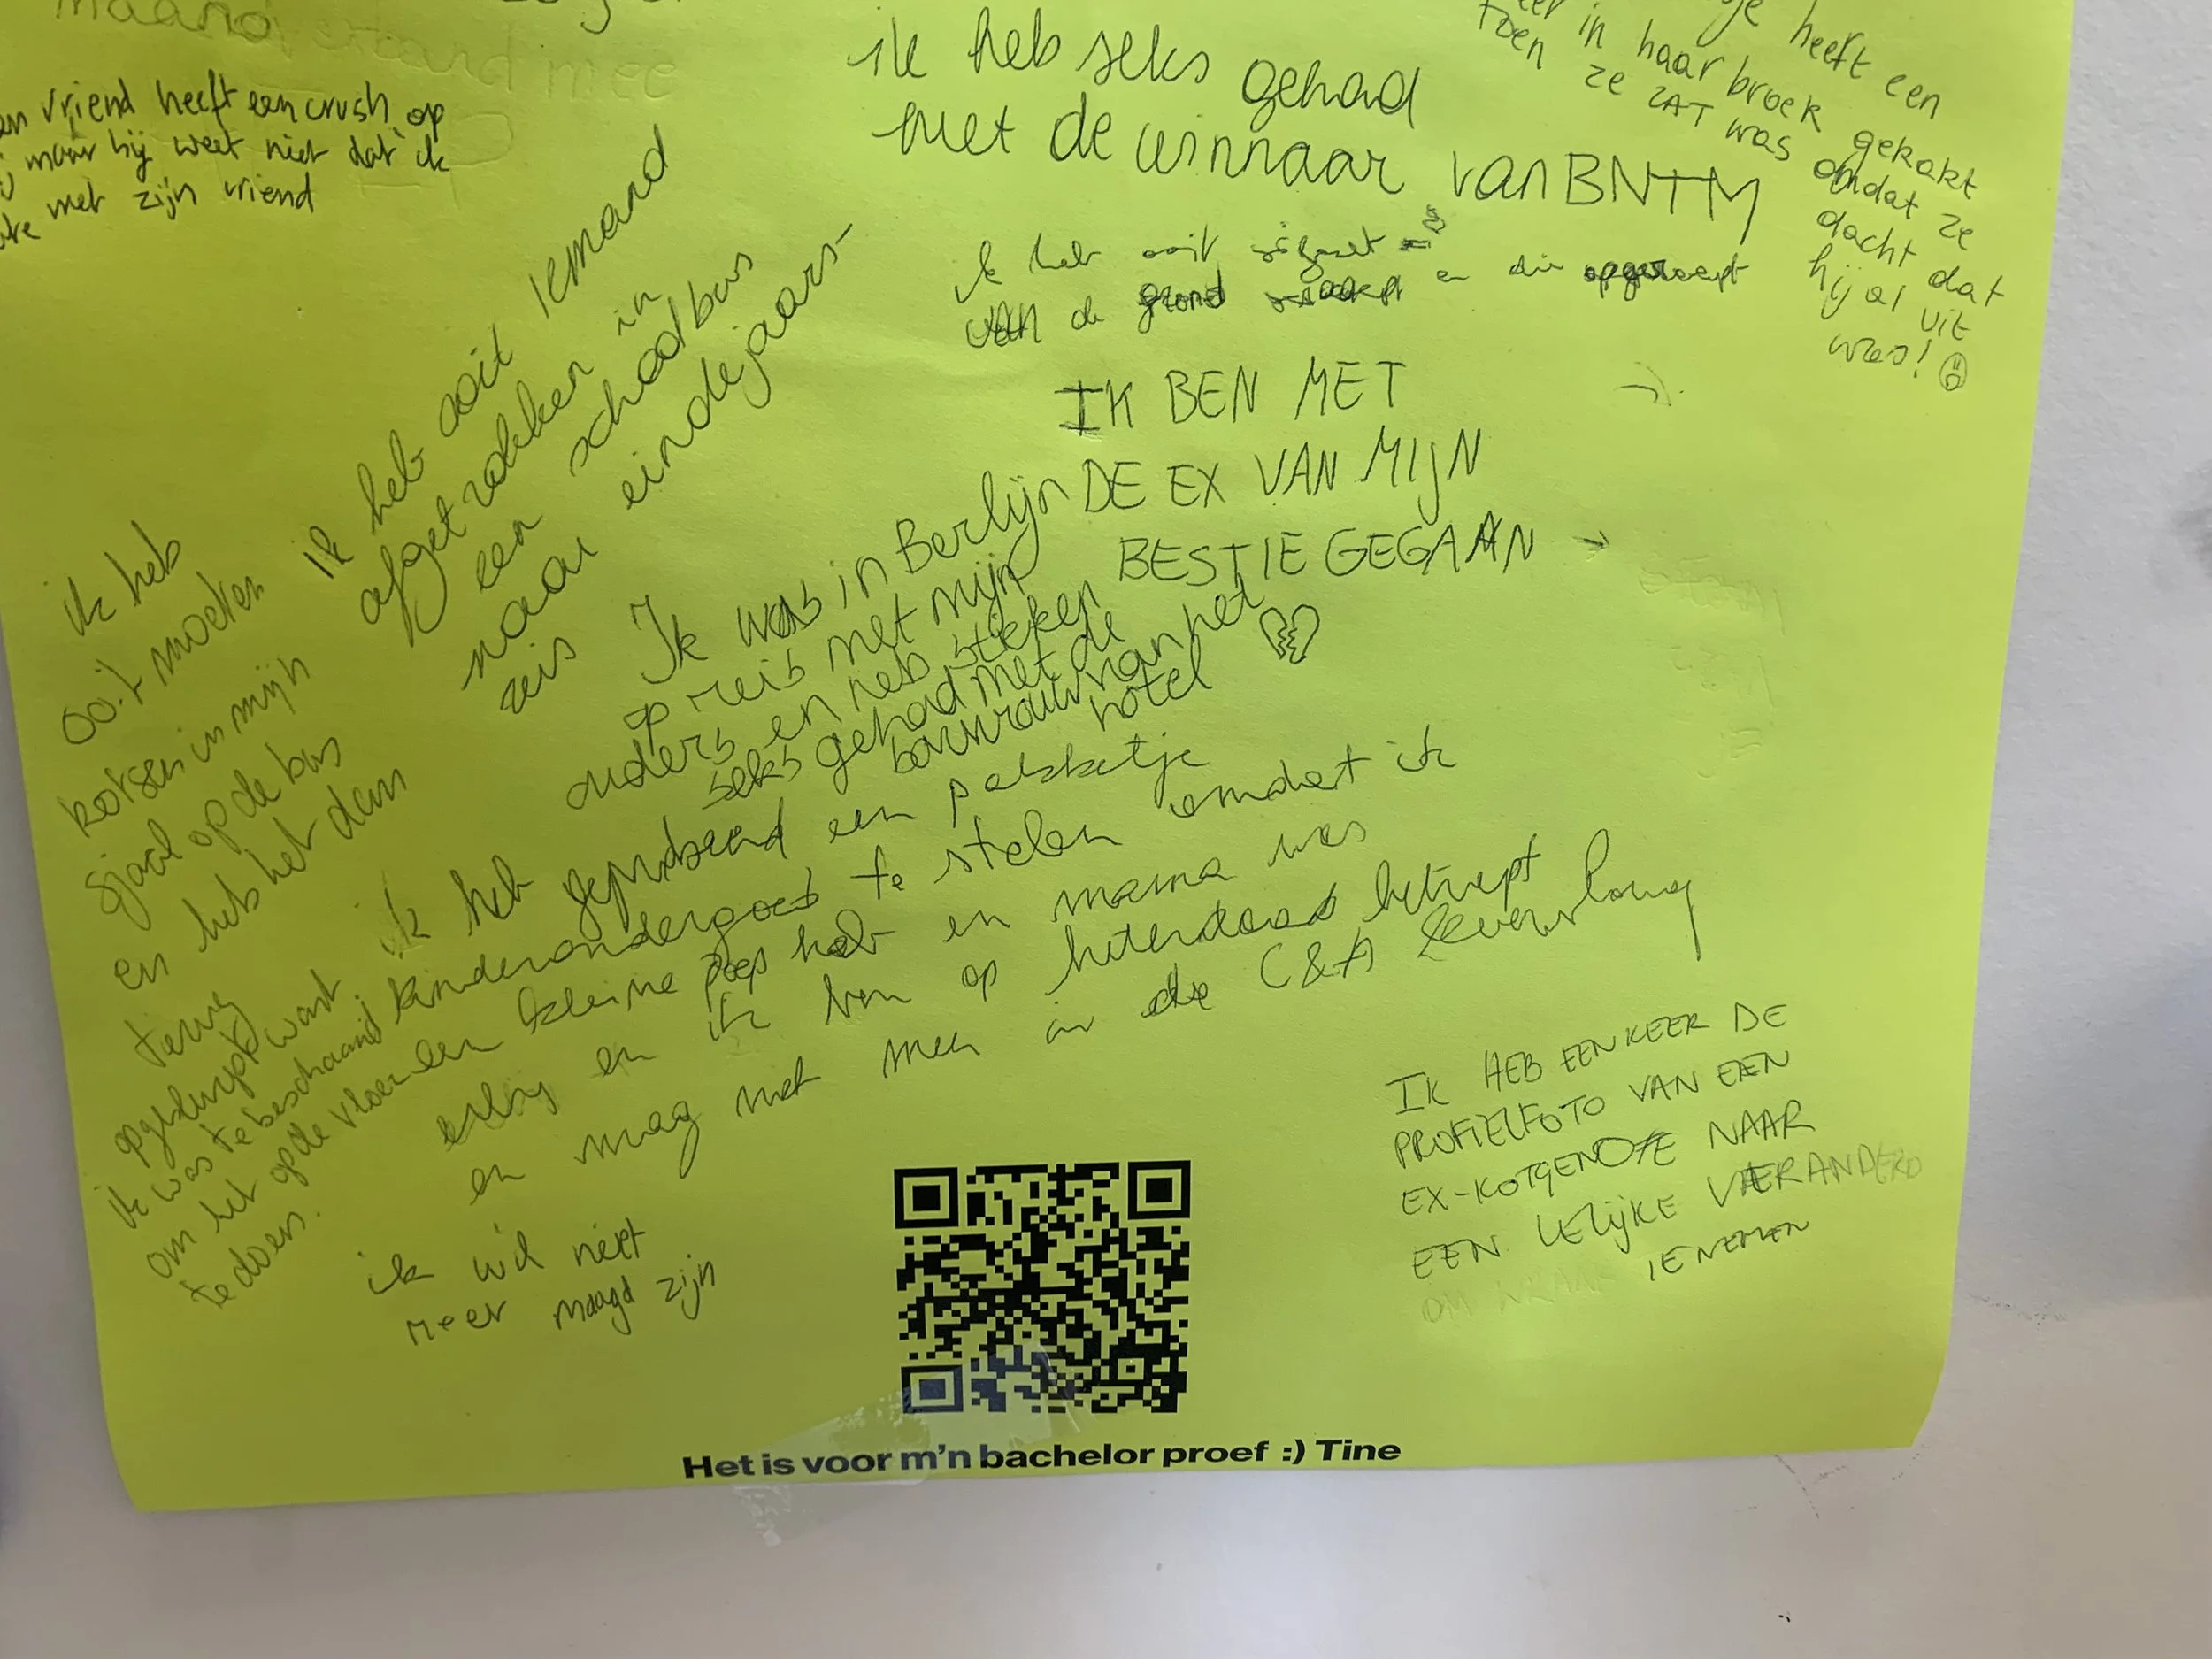 maand
verband mee
vriend heeft een crush op
maar hij weet niet dat ik
met zijn vriend
ik heb seks gehad
met de winnaar van BNTM
heeft een
in haar broek gekakt
toen ze ZAT was omdat ze
dacht dat
hij al uit
was!
ik heb ooit
van de grond en die opgerookt
ik heb ooit iemand
afgetrokken in
een schoolbus
naar eindejaars-
reis
IK BEN MET
DE EX VAN MIJN
BESTIE GEGAAN →
Ik was in Berlijn
op reis met mijn
ouders en heb stieken
seks gehad met de
barvrouw van het
hotel
ik heb
ooit moeten
kotsen in mijn
sjaal op de bus
en heb het dan
terug
opgeslurpt want
ik was te beschaamd
om het op de vloer
te doen.
ik heb geprobeerd een pakketje
kinderondergoed te stelen omdat ik
een kleine poep heb en mama was
en ik ben op heterdaad betrapt
en mag niet meer in de C&A levenslang
ik wil niet
meer maagd zijn
IK HEB EEN KEER DE
PROFIELFOTO VAN EEN
EX-KOTGENOTE NAAR
EEN LELIJKE VERANDERD
OM WRAAK TE NEMEN
Het is voor m'n bachelor proef :) Tine